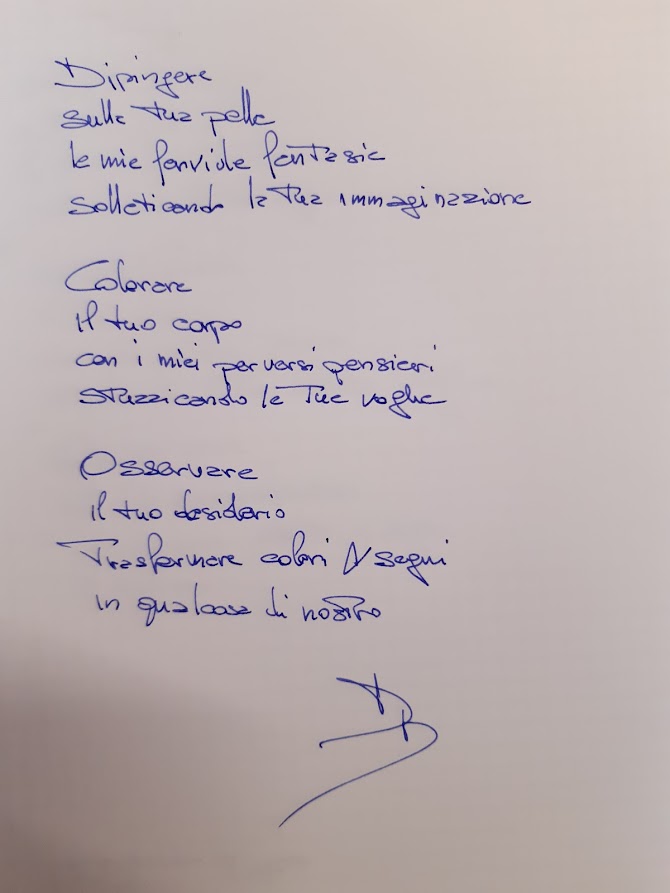 Dipingere
sulla tua pelle
le mie fervide fantasie
solleticando la tua immaginazione
Colorare
il tuo corpo
con i miei perversi pensieri
stuzzicando le tue voglie
Osservare
il tuo desiderio
Trasformare colori segni
in qualcosa di nostro